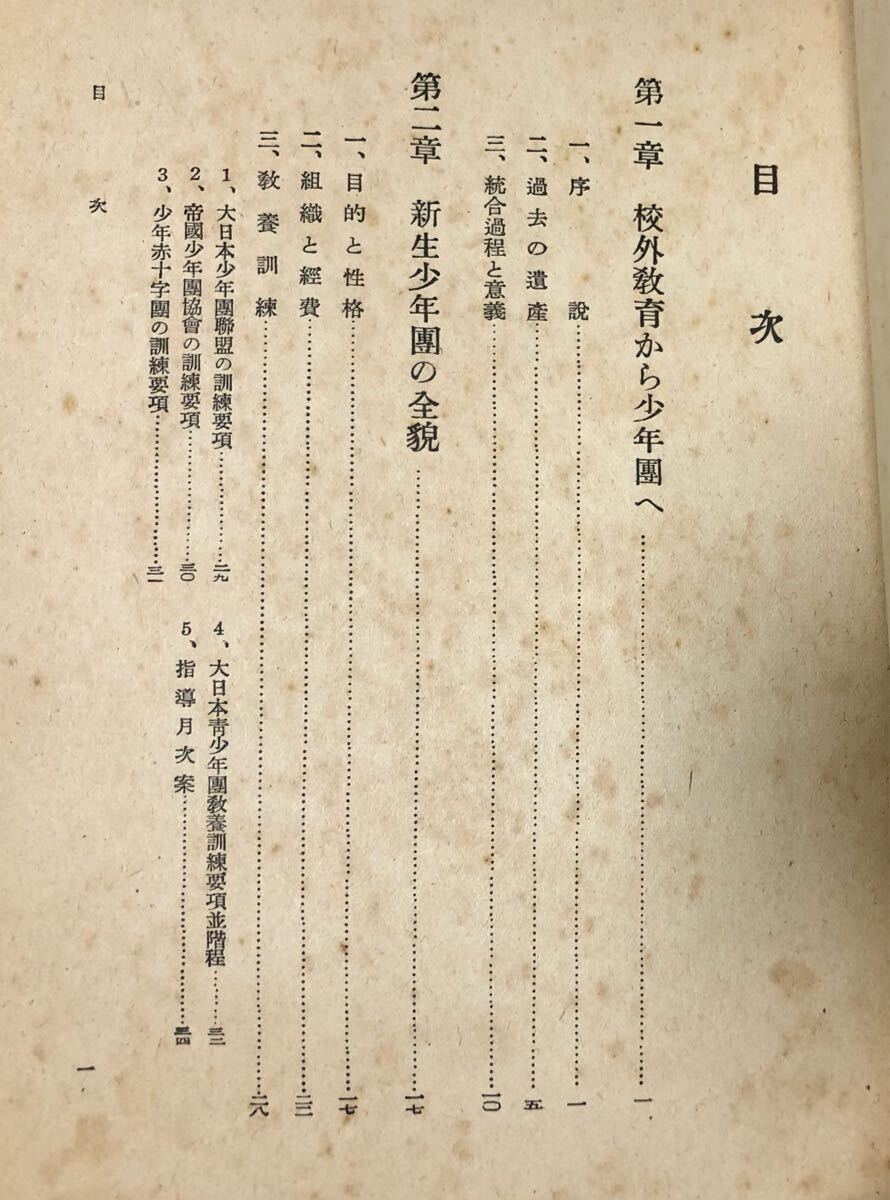 目次
第一章 校外敎育から少年團へ……一
一、序說……一
二、過去の遺產……五
三、統合過程と意義……一〇
第二章 新生少年團の全貌……一七
一、目的と性格……一七
二、組織と經費……二三
三、敎養訓練……二八
1、大日本少年團聯盟の訓練要項……二九
2、帝國少年團協會の訓練要項……三〇
3、少年赤十字團の訓練要項……三一
4、大日本靑少年團敎養訓練要項並階程……三二
5、指導月次案……三四
目次
一